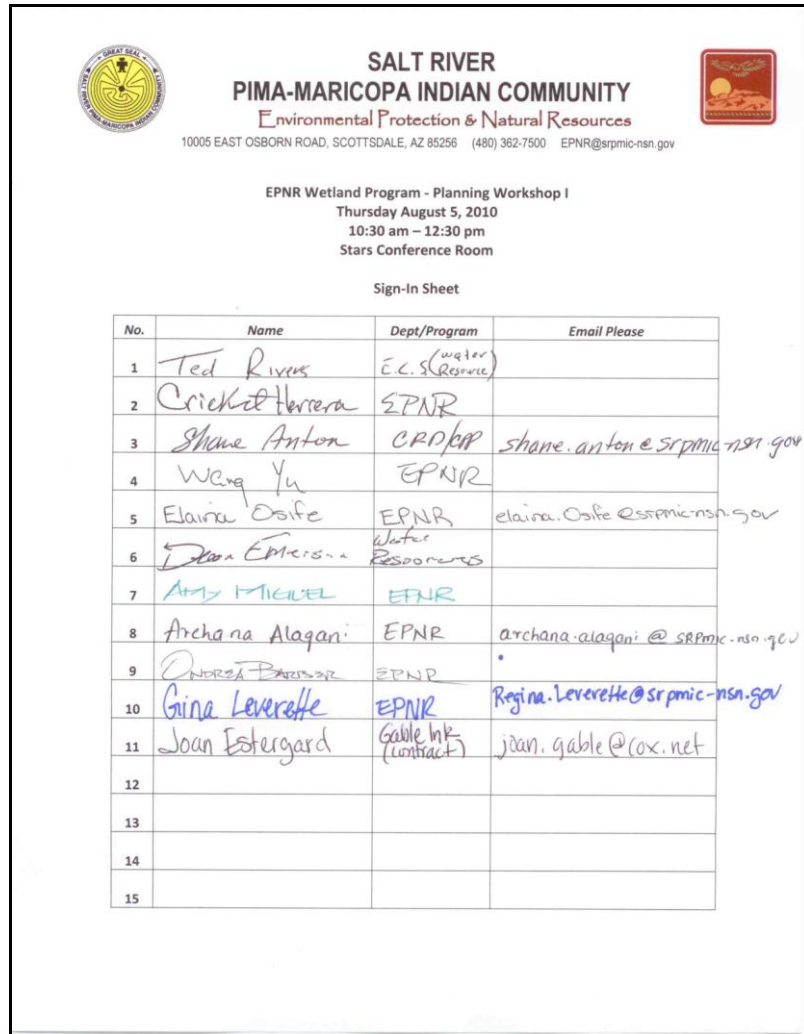 GREAT SEAL
SALT RIVER PIMA-MARICOPA INDIAN COMMUNITY
SALT RIVER
PIMA-MARICOPA INDIAN COMMUNITY
Environmental Protection & Natural Resources
10005 EAST OSBORN ROAD, SCOTTSDALE, AZ 85256 (480) 362-7500 EPNR@srpmic-nsn.gov
EPNR Wetland Program - Planning Workshop I
Thursday August 5, 2010
10:30 am – 12:30 pm
Stars Conference Room
Sign-In Sheet
No. Name Dept/Program Email Please
1 Ted Rivers E.C.S (Water Resource)
2 Cricket Herrera EPNR
3 Shane Anton CRD/CPP shane.anton@srpmic-nsn.gov
4 Wang Yu EPNR
5 Elaina Osife EPNR elaina.Osife@srpmic-nsn.gov
6 Emerson Water Resources
7 AMY MIGUEL EPNR
8 Archana Alagani EPNR archana.alagani@SRPmic-nsn.gov
9 ONDREA BARBER EPNR
10 Gina Leverette EPNR Regina.Leverette@srpmic-nsn.gov
11 Joan Estergard Gable Ink (contract) joan.gable@cox.net
12
13
14
15